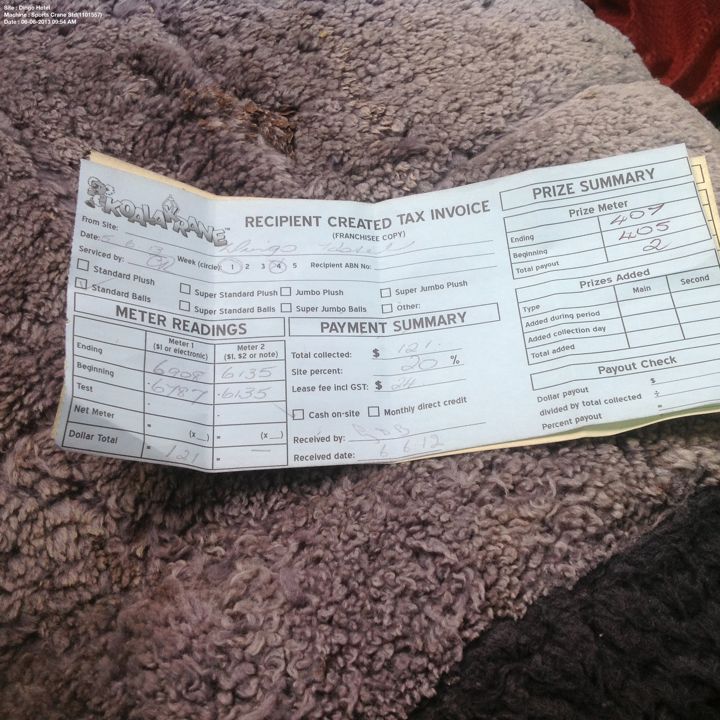 Site : Dingo Hotel
Machine : Sports Crane Std(1101557)
Date : 06-06-2013 09:54 AM
KOALA KRANE™
RECIPIENT CREATED TAX INVOICE
(FRANCHISEE COPY)
From Site: Dingo Hotel
Date:
Serviced by:
Week (circle): 1 2 3 4 5 Recipient ABN No:
Standard Plush Super Standard Plush Jumbo Plush Super Jumbo Plush
Standard Balls Super Standard Balls Super Jumbo Balls Other:
METER READINGS
Meter 1 ($1 or electronic) Meter 2 ($1, $2 or note)
Ending 6908 6135
Beginning 6787 6135
Test
Net Meter
= (x__) = (x__)
Dollar Total = 121 = —
PAYMENT SUMMARY
Total collected: $ 121
Site percent: 20 %
Lease fee incl GST: $ 24
Cash on-site Monthly direct credit
Received by:
Received date: 6 6 12
PRIZE SUMMARY
Prize Meter
Ending 407
Beginning 405
Total payout 2
Prizes Added
Type Main Second
Added during period
Added collection day
Total added
Payout Check
Dollar payout $
divided by total collected ÷
Percent payout =